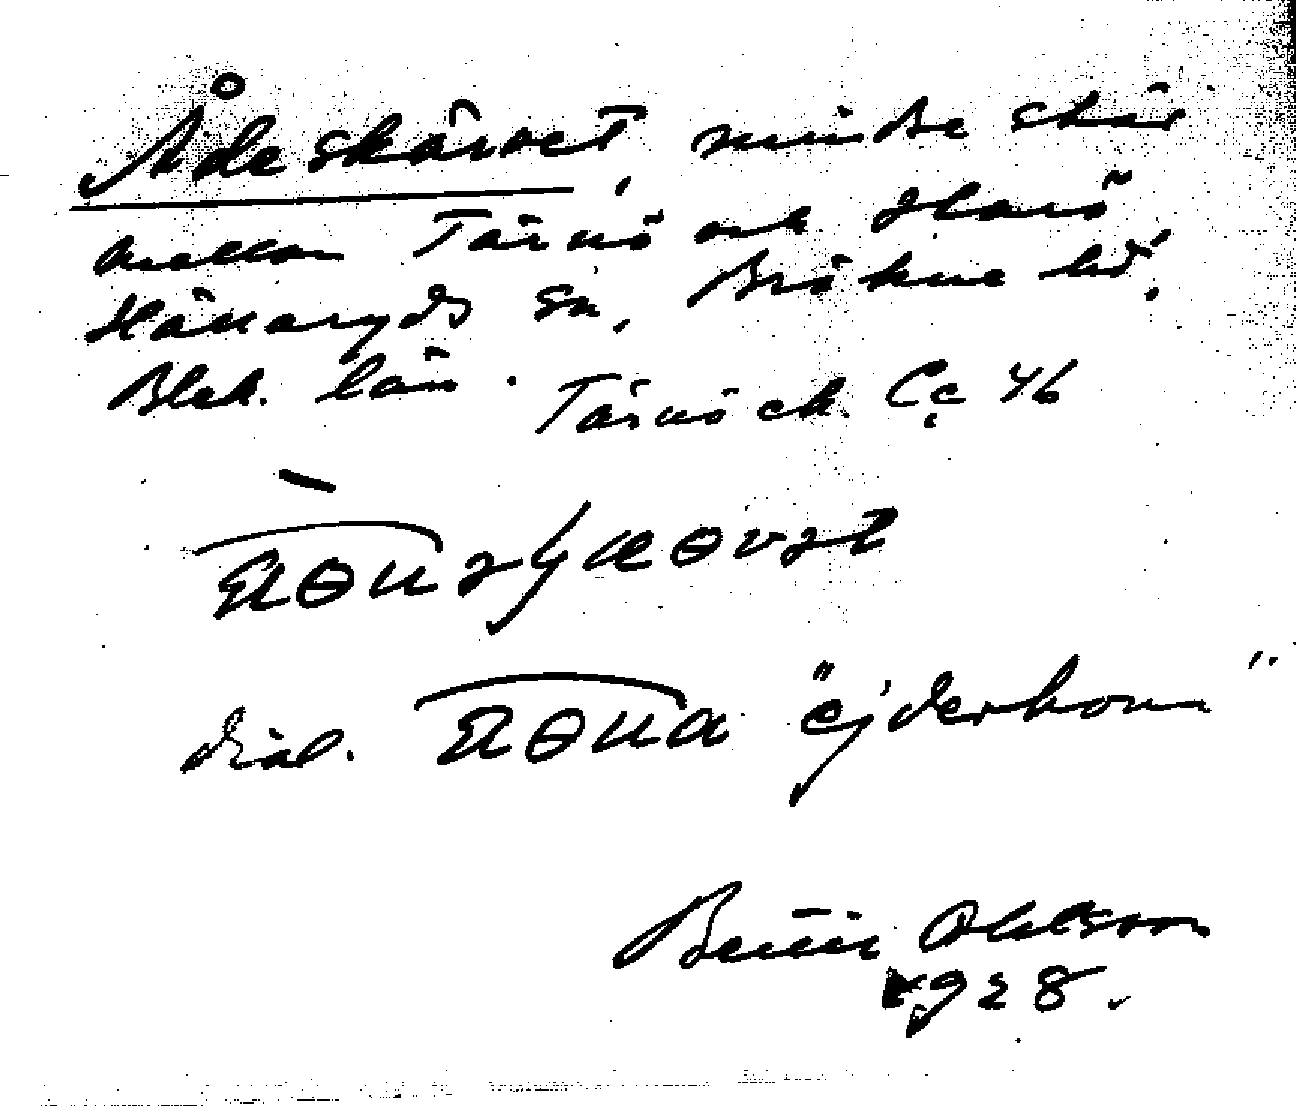 Ådeskärvet, mindre skär
mellan Tärnö och Harö
Hällaryds sn, Bräkne hd.
Blek. län. Tärnö ek. Cc 46
dial. "ejderhona"
Ohlsson
1928.